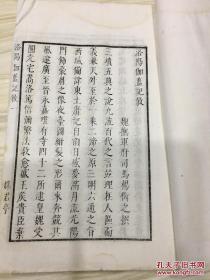 洛陽伽藍記敘
魏撫軍司馬楊衒之撰
三墳五典之說九流百代之言並理在人區而
義兼天外至於一乘二諦之原三明六通之旨
西域備詳東土靡記自項日感夢滿月流光陽
門飾豪眉之像夜臺圖紺髮之形爾來奔競其
風遂廣至晉永嘉唯有寺四十二所逮皇魏受
圖光宅嵩洛篤信彌繁法教愈盛王侯貴臣棄
洛陽伽藍記敘
綠君亭